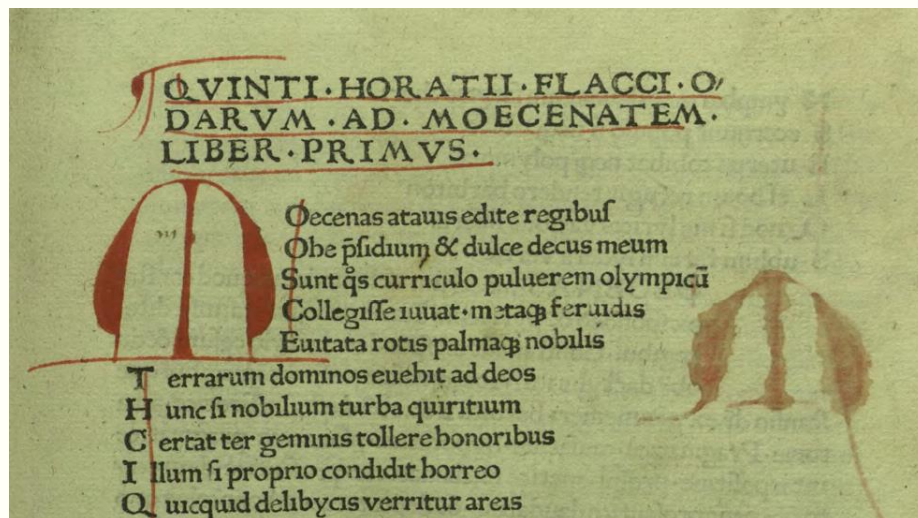 QVINTI·HORATII·FLACCI·O/
DARVM·AD·MOECENATEM·
LIBER·PRIMVS·
MOecenas atauis edite regibuſ
Obe p̄ſidium & dulce decus meum
Sunt q̊s curriculo puluerem olympicū
Collegiſſe iuuat·metaqꝫ feruidis
Euitata rotis palmaqꝫ nobilis
T errarum dominos euehit ad deos
H unc ſi nobilium turba quiritium
C ertat ter geminis tollere honoribus
I llum ſi proprio condidit horreo
Q uicquid delibycis verritur areis